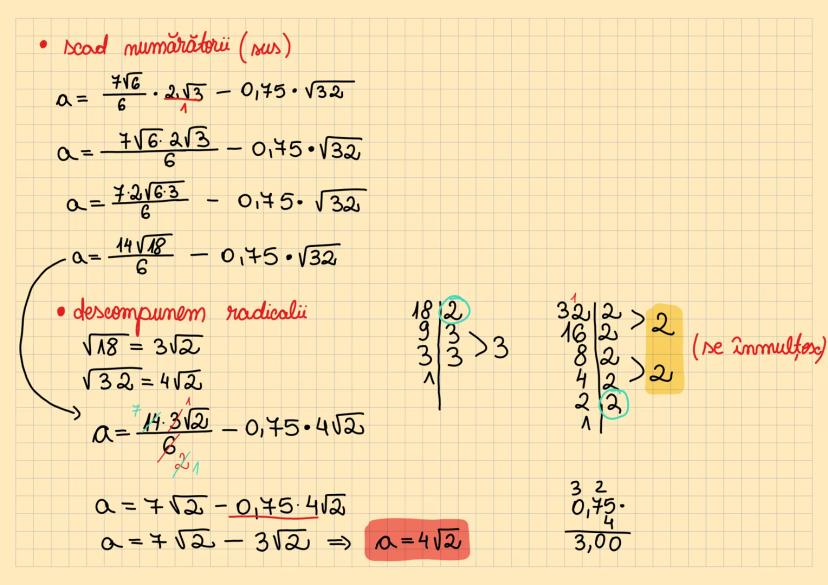 • scad numărătorii (sus)
a = 7√6/6 · 2√3/1 − 0,75 • √32
a = 7√6 · 2√3/6 − 0,75 • √32
a = 7·2√6·3/6 − 0,75 · √32
a = 14√18/6 − 0,75 • √32
• descompunem radicalii
√18 = 3√2
√32 = 4√2
18 | 2
9 | 3
3 | 3 > 3
1
32 | 2
16 | 2 > 2
8 | 2
4 | 2 > 2
2 | 2
1
(se înmulțesc)
a = 14·3√2/6 − 0,75 • 4√2
7 1
2 1
a = 7√2 − 0,75 · 4√2
a = 7√2 − 3√2 ⇒ a = 4√2
3 2
0,75 ·
4
3,00